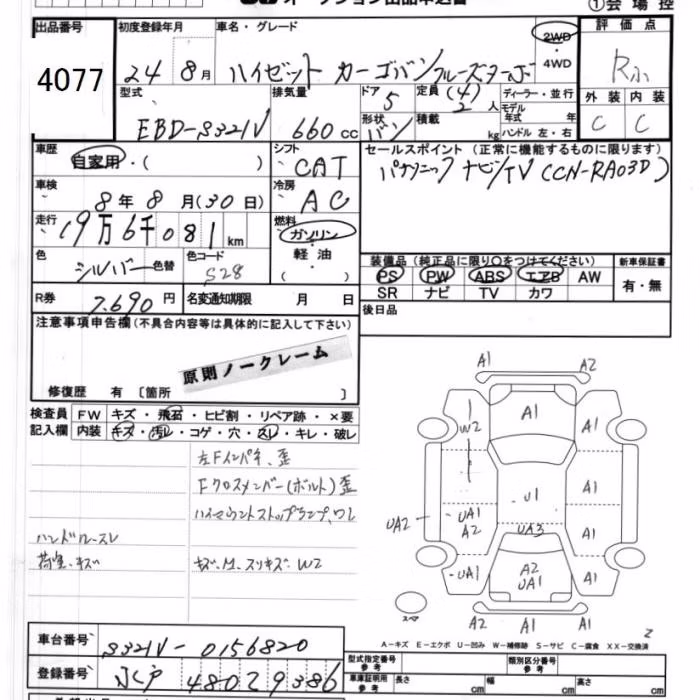 ①会場控
出品番号 初度登録年月 車名・グレード 2WD・4WD 評価点
4077 24年8月 ハイゼット カーゴバン クルーズターボ R
型式 排気量 ドア 5 定員 (4) 2人 ディーラー・並行 外装 内装
EBD-S321V 660cc 形状 バン 積載 kg モデル年式 年 ハンドル 左・右 C C
車歴 自家用・( ) シフト CAT セールスポイント (正常に機能するものに限ります)
車検 8年8月(30日) 冷房 AC パナソニック ナビ/TV (CN-RA03D)
走行 19万6千081km 燃料 ガソリン・軽油・( )
色 シルバー 色替 色コード S28
装備品 (純正品に限り○をつけてください) 新車保証書
PS PW ABS エアB AW 有・無
SR ナビ TV カワ
R券 7,690円 名変通知期限 月 日 後日品
注意事項申告欄(不具合内容等は具体的に記入して下さい)
原則ノークレーム
修復歴 有 〔箇所 〕
検査員記入欄 FW キズ・飛石・ヒビ割・リペア跡・×要
内装 キズ・汚レ・コゲ・穴・スレ・キレ・破レ
左Fインパネ、歪
Fクロスメンバー(ボルト)歪
ハイマウントストップランプ、ワレ
ハンドルスレ
荷室、キズ キズ、M、スリキズ W2
A1 A2
A1
W2 A1
U1 A1
UA2 UA1 A2 UA3 A1
UA1 A2 UA1 A1
スペア A2 A1 A1
2
A-キズ E-エクボ U-凹み W-補修跡 S-サビ C-腐食 XX-交換済
車台番号 S321V-0156820
型式指定番号 参考 類別区分番号 参考
登録番号 48029386
車庫証明用 参考 長さ cm 幅 cm 高さ cm